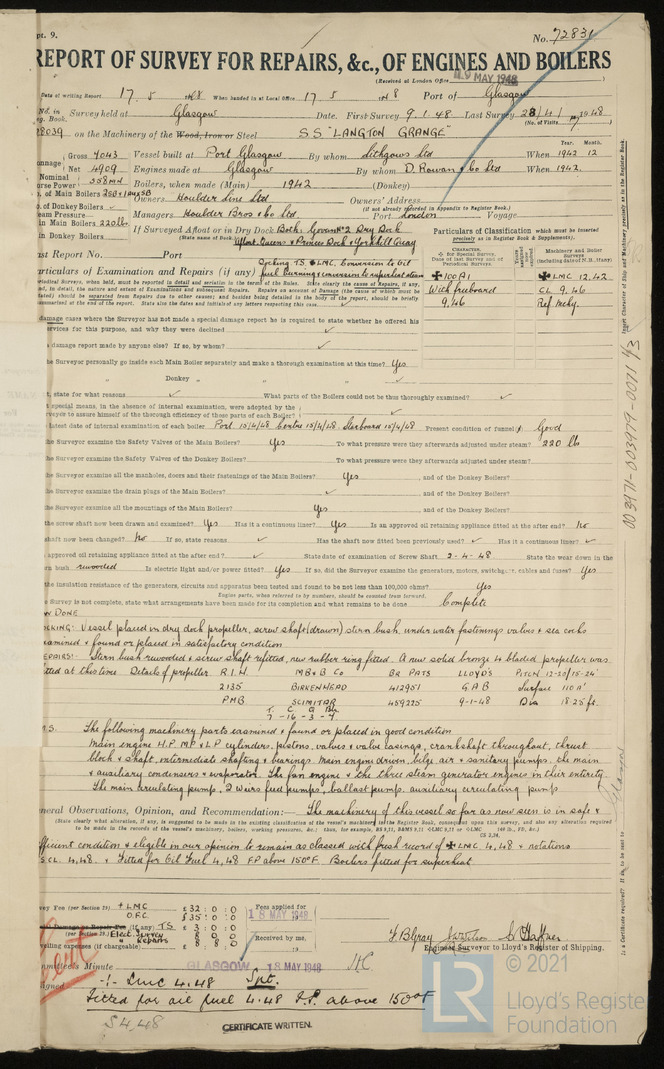 pt. 9.
No. 72831
REPORT OF SURVEY FOR REPAIRS, &c., OF ENGINES AND BOILERS
(Received at London Office 19 MAY 1948 )
Date of writing Report 17. 5 1948 When handed in at Local Office 17. 5 1948 Port of Glasgow
No. in Survey held at Glasgow Date, First Survey 9.1.48 Last Survey 28/4/1948
eg. Book. (No. of Visits )
28039 on the Machinery of the Wood, Iron or Steel S.S "LANGTON GRANGE"
Year. Month.
onnage Gross 7043 Vessel built at Port Glasgow By whom Lithgows Ltd When 1942 12
Net 4909 Engines made at Glasgow By whom D. Rowan & Co Ltd When 1942.
Nominal
orse Power 558MN Boilers, when made (Main) 1942 (Donkey)
o. of Main Boilers Owners Houlder Line Ltd Owners' Address
(if not already recorded in Appendix to Register Book.)
o. of Donkey Boilers Managers Houlder Bros & Co Ltd Port London Voyage
eam Pressure
in Main Boilers 220 lbs If Surveyed Afloat or in Dry Dock Both Govan No 2 Dry Dock
in Donkey Boilers (State name of Dock.) Afloat. Queens & Princes Dock & Yorkhill Quay
Particulars of Classification which must be inserted
precisely as in Register Book & Supplements).
ast Report No. Port
Docking. T.S. & LMC. Conversion to Oil
articulars of Examination and Repairs (if any) fuel burning & conversion to superheat steam
CHARACTER.
Machinery and Boiler Surveys (including dates of N.B., if any)
✠ 100A1 ✠ LMC 12.42
With freeboard CL 9.46
9.46 Ref Mchy.
amage cases where the Surveyor has not made a special damage report he is required to state whether he offered his
ervices for this purpose, and why they were declined
damage report made by anyone else? If so, by whom?
he Surveyor personally go inside each Main Boiler separately and make a thorough examination at this time? Yes
" Donkey " " "
t, state for what reasons What parts of the Boilers could not be thus thoroughly examined?
special means, in the absence of internal examination, were adopted by the
rveyor to assure himself of the thorough efficiency of those parts of each Boiler?
latest date of internal examination of each boiler Port 15/4/48 Centre 15/4/48. Starboard 15/4/48 Present condition of funnel Good
he Surveyor examine the Safety Valves of the Main Boilers? Yes To what pressure were they afterwards adjusted under steam? 220 lbs
he Surveyor examine the Safety Valves of the Donkey Boilers? To what pressure were they afterwards adjusted under steam?
he Surveyor examine all the manholes, doors and their fastenings of the Main Boilers? Yes , and of the Donkey Boilers?
he Surveyor examine the drain plugs of the Main Boilers? , and of the Donkey Boilers?
he Surveyor examine all the mountings of the Main Boilers? Yes , and of the Donkey Boilers?
the screw shaft now been drawn and examined? Yes Has it a continuous liner? Yes Is an approved oil retaining appliance fitted at the after end? No
shaft now been changed? No If so, state reasons Has the shaft now fitted been previously used? Has it a continuous liner?
approved oil retaining appliance fitted at the after end? State date of examination of Screw Shaft 2-4-48 State the wear down in the
rn bush rewooded Is electric light and/or power fitted? Yes If so, did the Surveyor examine the generators, motors, switchgear, cables and fuses? Yes
the insulation resistance of the generators, circuits and apparatus been tested and found to be not less than 100,000 ohms? Yes
Engine parts, when referred to by numbers, should be counted from forward.
he Survey is not complete, state what arrangements have been made for its completion and what remains to be done Complete
W DONE
CKING: Vessel placed in dry dock propeller, screw shaft (drawn) stern bush, under water fastenings valves & sea cocks
xamined & found or placed in satisfactory condition
EPAIRS:- Stern bush rewooded & screw shaft refitted, new rubber ring fitted. A new solid bronze 4 bladed propeller was
itted at this time Details of propeller R.I.H. MB & B Co BR PATS LLOYD'S PITCH 12-20/15-24'
2135 BIRKENHEAD 412951 G.A.B Surface 110 ft
PMB SCIMITAR 459225 9-1-48 Dia 18.25 ft.
T. C. Q. lbs
7 - 16 - 3 - 7
The following machinery parts examined & found or placed in good condition
Main engine H.P. M.P & L.P cylinders, pistons, valves & valve casings, crankshaft throughout, thrust
block & shaft, intermediate shafting & bearings. Main engine driven, bilge air & sanitary pumps. the main
& auxiliary condensers & evaporator. The fan engine & the three steam generator engines in their entirety.
The main circulating pump, 2 weirs feed pumps, ballast pump. auxiliary circulating pump
neral Observations, Opinion, and Recommendation:— The machinery of this vessel so far as now seen is in safe &
(State clearly what alteration, if any, is suggested to be made in the existing classification of the vessel's machinery
fficient condition & eligible in our opinion to remain as classed with fresh record of ✠ LMC 4,48 & notations
S.CL. 4,48. & Fitted for Oil Fuel 4,48 F.P above 150°F. Boilers fitted for superheat
vey Fee (per Section 29) + LMC £ 32 : 0 : 0 Fees applied for
O.F.C. £ 35 : 0 : 0 18 MAY 1948
(if any) T.S £ 3 : 0 : 0
(per Section 29.) Elect. Survey 8 : 0 : 0 Received by me,
" Repairs 8 : 8 : 0
velling expenses (if chargeable)
Engineer Surveyor to Lloyd's Register of Shipping.
mmittee's Minute GLASGOW 18 MAY 1948
signed + LMC 4.48 Spt.
Fitted for oil fuel 4.48 F.P. above 150°F
S 4,48
CERTIFICATE WRITTEN.
003971-003979-0071 1/3
Insert Character of Ship and Machinery precisely as in the Register Book.
Is a Certificate required? If so, to be sent to
Glasgow
LR
© 2021
Lloyd's Register
Foundation